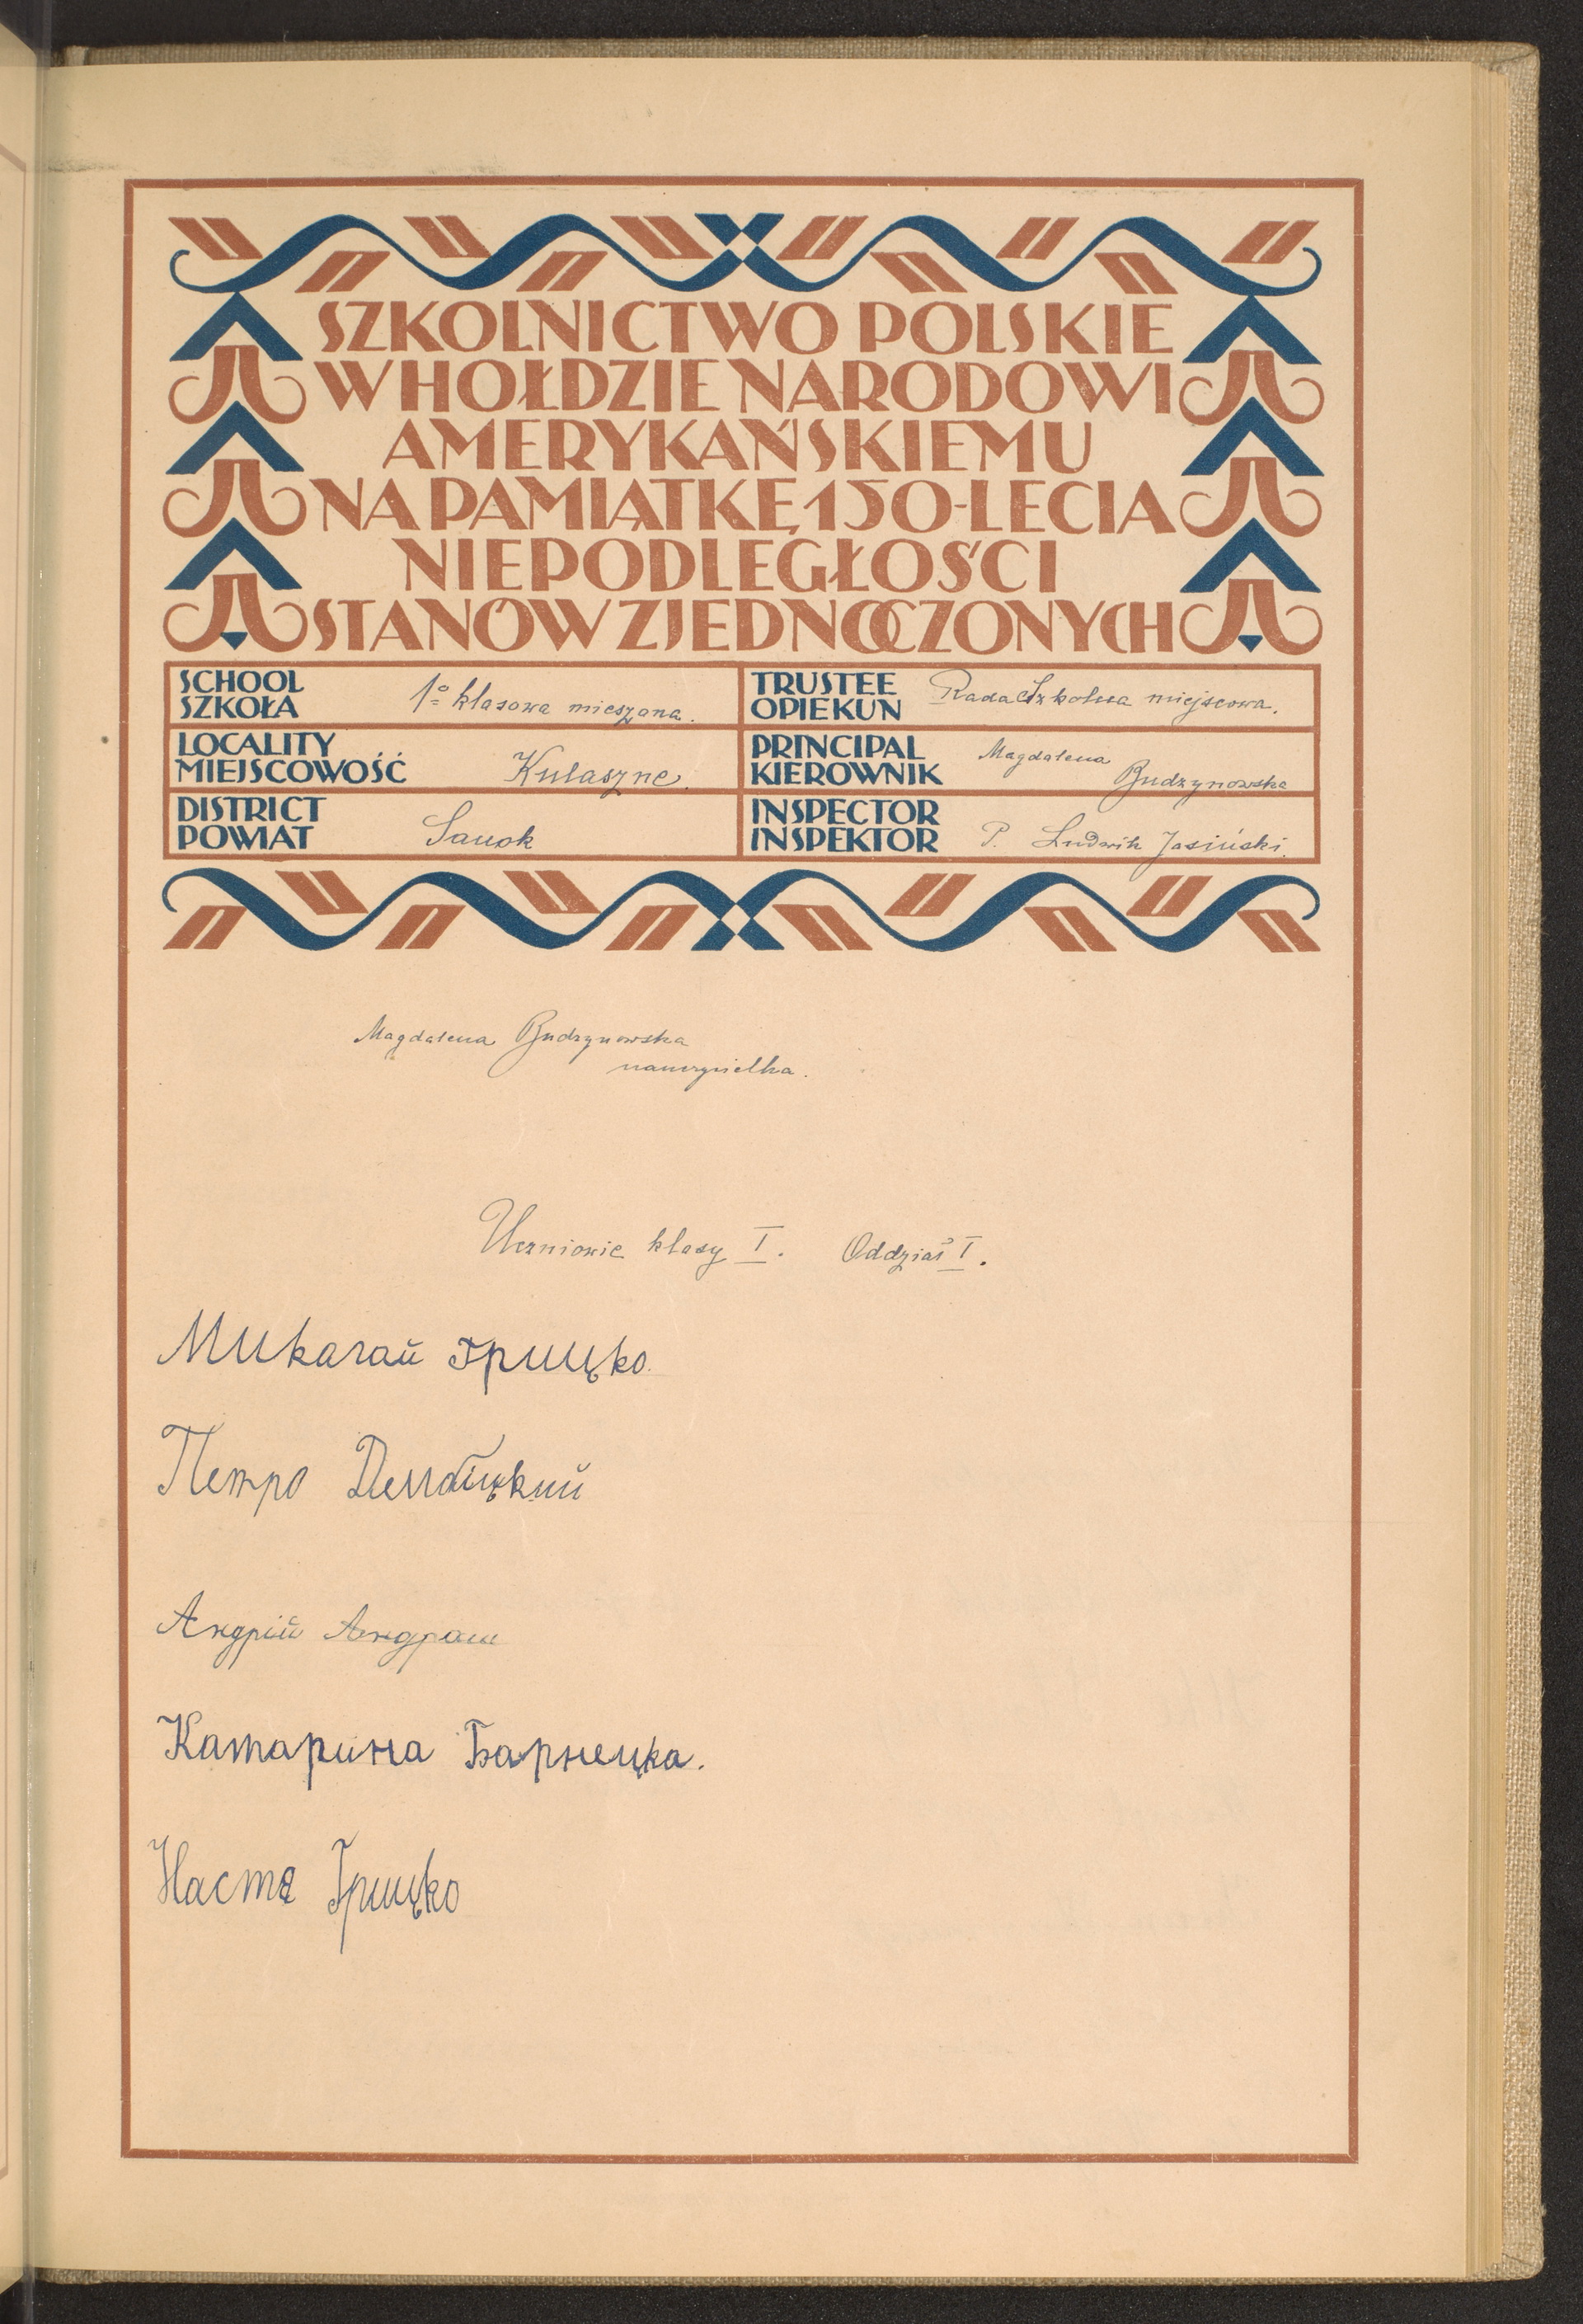 SZKOLNICTWO POLSKIE
W HOŁDZIE NARODOWI
AMERYKAŃSKIEMU
NA PAMIĄTKĘ 150-LECIA
NIEPODLEGŁOŚCI
STANÓW ZJEDNOCZONYCH
SCHOOL
SZKOŁA 1o klasowa mieszana.
TRUSTEE
OPIEKUN Rada Szkolna miejscowa.
LOCALITY
MIEJSCOWOŚĆ Kulaszne.
PRINCIPAL
KIEROWNIK Magdalena
Budzynowska
DISTRICT
POWIAT Sanok
INSPECTOR
INSPEKTOR P. Ludwik Jasiński.
Magdalena Budzynowska
nauczycielka.
Uczniowie klasy I. Oddział I.
Микалай Грицко.
Петро
Андрій Андраш
Катарина Барнецка.
Настя Грицко